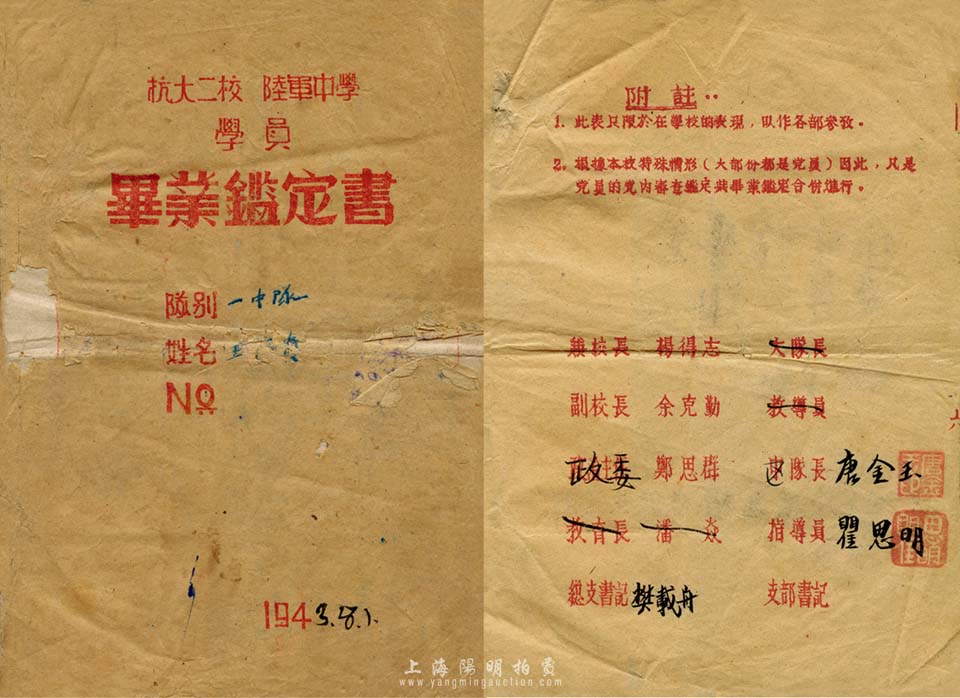 杭大二校 陸軍中學
學員
畢業鑑定書
隊别 一中隊
姓名 王
No
1943.8.1.
附註..
1. 此表只限於在學校的表現，以作各部參攷。
2. 根據本校特殊情形（大部份都是党員）因此，凡是
党員的党内審查鑑定與畢業鑑定合併進行。
兼校長 楊得志 大隊長
副校長 余克勤 教導員
政委 鄭思群 隊長 唐金玉
教育長 潘焱 指導員 瞿思明
總支書記 樊載舟 支部書記
上海陽明拍賣
www.yangmingauction.com